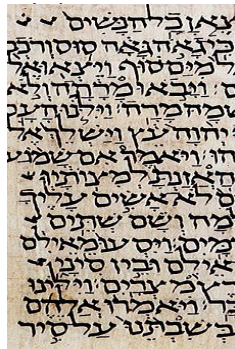 צאן כל הנשים
כי גאה גאה סוס ורכב
ל מים סוף ויצאו אל
ם ויבאו מרתה ולא
שמה מרה וילנו העם
יהוה עץ וישלך אל
הו ויאמר אם שמוע
האזנת למצותיו
ם לא אשים עליך
מה ושם שתים
המים ויסעו מאילם
אילם ובין סיני
רץ מצרים וילינו
ויאמרו אלהם
בשבתנו על סיר